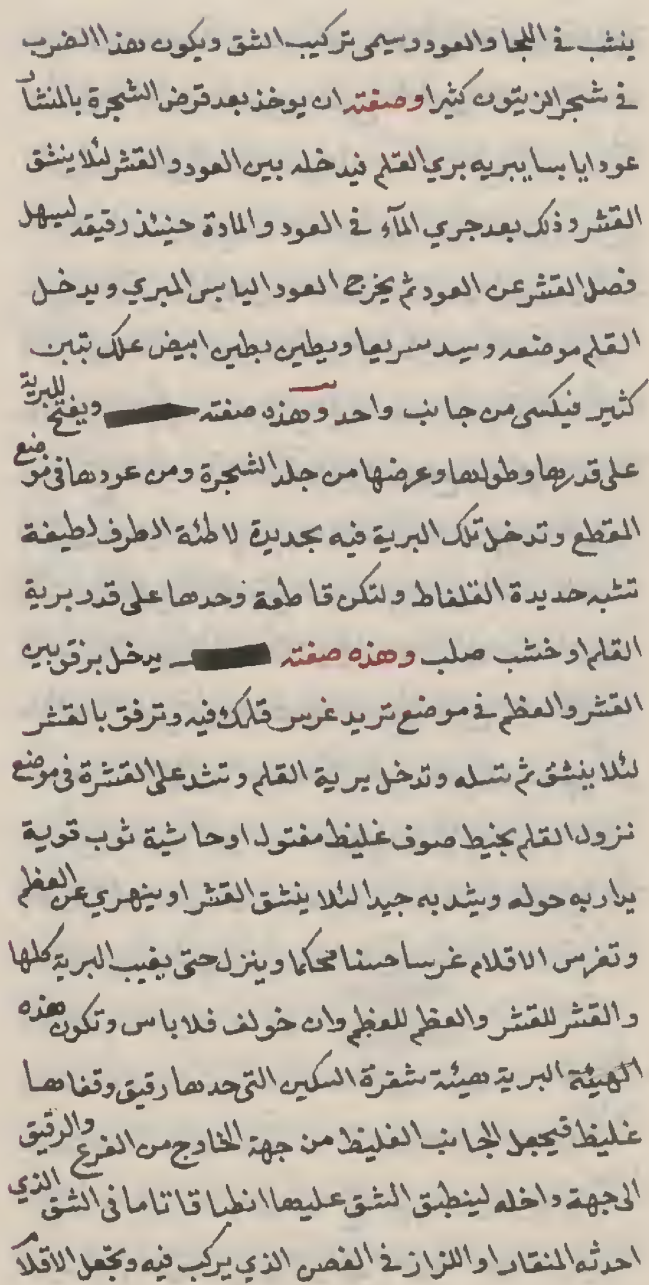 ينشب في اللجا والعود وسيمى تركيب الشق ويكون هذا الضرب
في شجر الزيتون كثيرا وصفته ان يوخذ بعد قرض الشجرة بالمنشار
عودا يابسا يبريه بري القلم فيدخله بين العود والقشر لئلا ينشق
القشر وذلك بعد جري المآء في العود والمادة حينئذ رقيقه ليسهل
فصل القشر عن العود ثم يخرج العود اليابس المبري ويدخل
القلم موضعه ويسد سريعا ويطين بطين ابيض علك بتبن
كثير فيكسى من جانب واحد وهذه صفته ويفتح للبرية
على قدرها وطولها وعرضها من جلد الشجرة ومن عودها في موضع
القطع وتدخل تلك البرية فيه بحديدة لاطئة الطرف لطيفة
تشبه حديدة القلفاط ولتكن قاطعة وحدها على قدر برية
القلم او خشب صلب وهذه صفته يدخل برفق بين
القشر والعظم في موضع تريد غرس قلمك فيه وترفق بالقشر
لئلا ينشق ثم تسله وتدخل برية القلم وتشد على القشرة في موضع
نزول القلم بخيط صوف غليظ مفتول او حاشية ثوب قوية
يدار به حوله ويشد به جيدا لئلا ينشق القشر او ينهري عن العظم
وتغرس الاقلام غرسا حسنا محكما وينزل حتى يغيب البرية كلها
والقشر للقشر والعظم للعظم وان خولف فلا باس وتكون هذه
الهيئة البرية هيئة شفرة السكين التي حدها رقيق وقفاها
غليظ فيجعل الجانب الغليظ من جهة الخارج من الفرع والرقيق
الى جهة داخله لينطبق الشق عليها انطباقا تاما في الشق الذي
احدثه المنقار او اللزاز في الغصن الذي يركب فيه وتجعل الاقلام